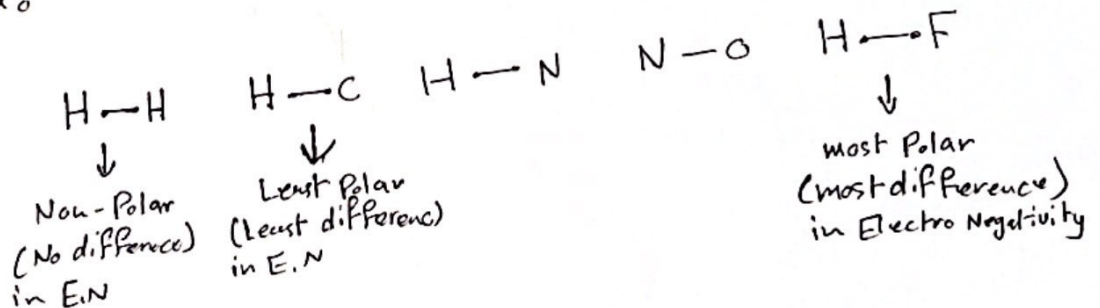 H—H H—C H—N N—O H—F
Non-Polar
(No difference)
in E.N
Least Polar
(Least differenc)
in E.N
most Polar
(most difference)
in Electro Negativity